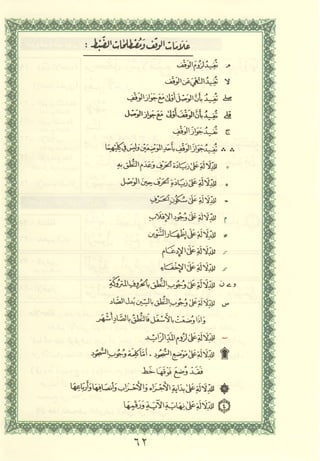 عَلَامَات الوَقْف وَمُصْطَلَحَات الضَّبْط :
مـ تُفِيدُ لُزُومَ الوَقْف
لا تُفِيدُ النَّهْيَ عَنِ الوَقْف
صلے تُفِيدُ بِأَنَّ الوَصْلَ أَوْلَى مَعَ جَوَازِ الوَقْفِ
قلے تُفِيدُ بِأَنَّ الوَقْفَ أَوْلَى مَعَ جَوَازِ الوَصْلِ
ج تُفِيدُ جَوَازَ الوَقْفِ
∴ ∴ تُفِيدُ جَوَازَ الوَقْفِ بِأَحَدِ المَوْضِعَيْنِ وَلَيْسَ فِي كِلَيْهِمَا
ه لِلدِّلَالَةِ عَلَى زِيَادَةِ الحَرْفِ وَعَدَمِ النُّطْقِ بِهِ
ه لِلدِّلَالَةِ عَلَى زِيَادَةِ الحَرْفِ حِينَ الوَصْل
ح لِلدِّلَالَةِ عَلَى سُكُونِ الحَرْفِ
م لِلدِّلَالَةِ عَلَى وُجُودِ الإِقْلَاب
لِلدِّلَالَةِ عَلَى إِظْهَارِ التَّنْوِين
لِلدِّلَالَةِ عَلَى الإِدْغَام
لِلدِّلَالَةِ عَلَى الإِخْفَاء
ا و ے ن لِلدِّلَالَةِ عَلَى وُجُوبِ النُّطْقِ بِالحُرُوفِ المَتْرُوكَة
س لِلدِّلَالَةِ عَلَى وُجُوبِ النُّطْقِ بِالسِّينِ بَدَلَ الصَّاد
وَإِذَا وُضِعَتْ بِالأَسْفَلِ فَالنُّطْقُ بِالصَّادِ أَشْهَر
~ لِلدِّلَالَةِ عَلَى لُزُومِ المَدِّ الزَّائِد
۩ لِلدِّلَالَةِ عَلَى مَوْضِعِ السُّجُود ، أَمَّا كَلِمَة وُجُوبِ السُّجُود
فَقَدْ وُضِعَ فَوْقَهَا خَط
۞ لِلدِّلَالَةِ عَلَى بِدَايَةِ الأَجْزَاءِ وَالأَحْزَابِ وَأَنْصَافِهَا وَأَرْبَاعِهَا
لِلدِّلَالَةِ عَلَى نِهَايَةِ الآيَةِ وَرَقْمِهَا
٦٢